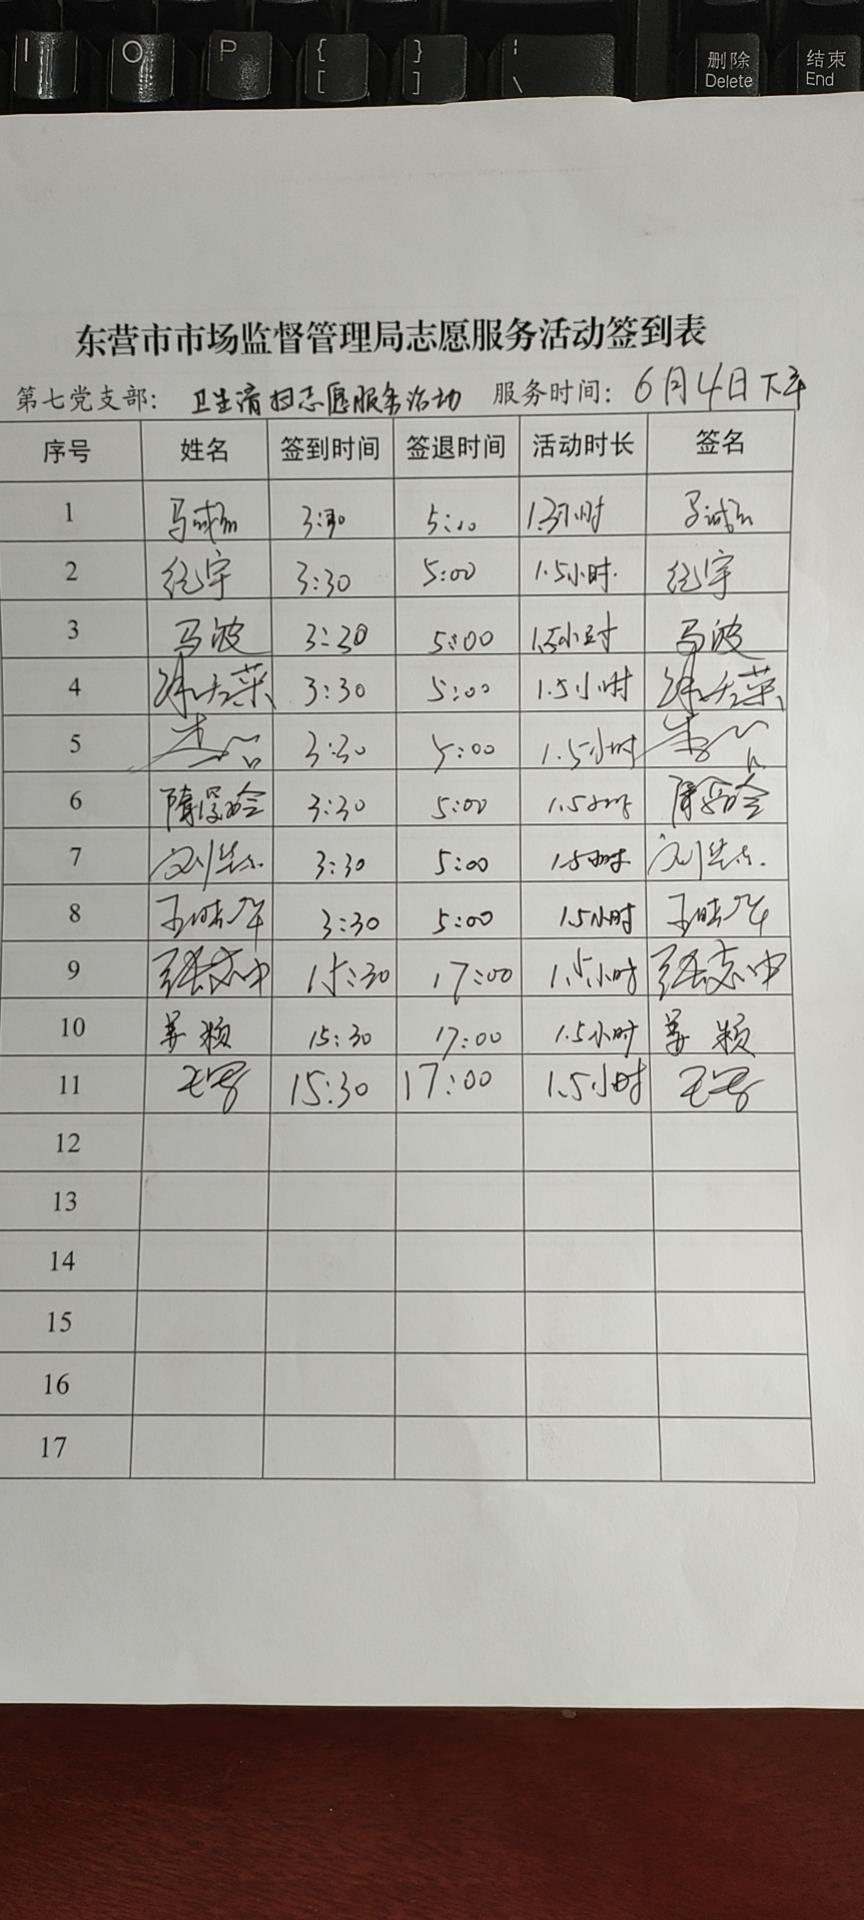 I O P { [ } ] ¦ \ 删除 Delete 结束 End
东营市市场监督管理局志愿服务活动签到表
第七党支部: 卫生清扫志愿服务活动 服务时间: 6月4日下午
序号 姓名 签到时间 签退时间 活动时长 签名
1 3:30 5:00
2 纪宇 3:30 5:00 1.5小时. 纪宇
3 马波 3:30 5:00 1.5小时 马波
4 3:30 5:00 1.5小时
5 3:30 5:00 1.5小时
6 3:30 5:00 1.5小时
7 3:30 5:00 1.5小时
8 3:30 5:00 1.5小时
9 张志中 15:30 17:00 1.5小时 张志中
10 姜颖 15:30 17:00 1.5小时 姜颖
11 15:30 17:00 1.5小时
12
13
14
15
16
17